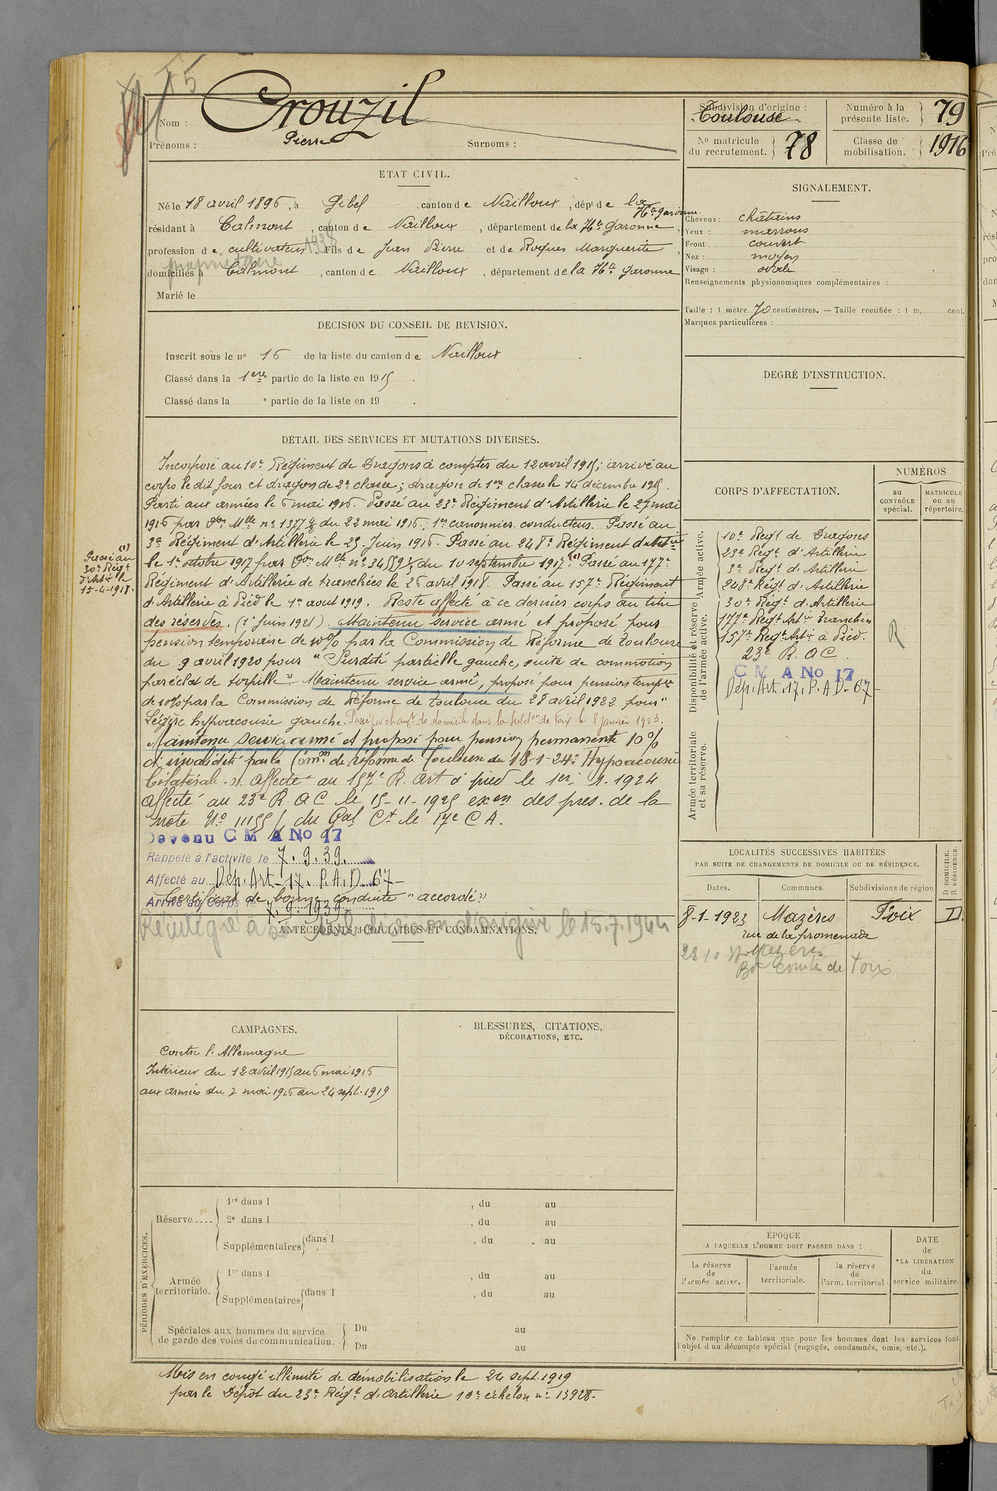 Nom : Crouzil
Prénoms : Pierre Surnoms :
ETAT CIVIL.
Né le 18 avril 1896, à Gibel, canton de Nailloux, dépt de la Hte Garonne
résidant à Calmont, canton de Nailloux, département de la Hte Garonne,
profession de cultivateur 1938 Fils de Jean Pierre et de Roques Marguerite
propriétaire
domiciliés à Calmont, canton de Nailloux, département de la Hte Garonne
Marié le
DECISION DU CONSEIL DE REVISION.
Inscrit sous le n° 16 de la liste du canton de Nailloux
Classé dans la 1ere partie de la liste en 1915.
Classé dans la e partie de la liste en 19 .
DÉTAIL DES SERVICES ET MUTATIONS DIVERSES.
Incorporé au 10e Régiment de Dragons à compter du 12 avril 1915; arrivé au
corps le dit jour et dragon de 2e classe; dragon de 1ere classe le 14 décembre 1915.
Parti aux armées le 6 mai 1916. Passé au 23e Régiment d'Artillerie le 27 mai
1916 par don Mlle n° 1377 du 22 mai 1916, 1er canonnier conducteur. Passé au
3e Régiment d'Artillerie le 23 Juin 1916. Passé au 248e Régiment d'Artie
le 1er octobre 1917 par don Mlle n° du 10 septembre 1917 (1) Passé au 177e
Régiment d'Artillerie de tranchées le 25 avril 1918. Passé au 157e Régiment
d'Artillerie à Pied le 1er aout 1919. Reste affecté à ce dernier corps au titre
des réserves. (1er juin 1921) Maintenu service armé et proposé pour
pension temporaire de 10% par la Commission de Réforme de Toulouse
du 9 avril 1920 pour "Surdité partielle gauche, suite de commotion
par éclat de torpille" Maintenu service armé, proposé pour pension tempre
de 10% par la Commission de Réforme de Toulouse du 28 avril 1922 pour "
Légère hypoacousie gauche. Passé par changt de domicile dans la subdon de Foix le 8 janvier 1923.
Maintenu service armé et proposé pour pension permanente 10%
d'invalidité par la Comon de réforme de Toulouse du 18-1-24: Hypoacousie
bilatéral. Affecté au 157e R. Art à pied le 1er 1924
Affecté au 23e R.A.C le 15-11-1925 exon des pres. de la
note N° 11155/ du Gal Ct le 17e C.A.
Devenu C M A No 17
Rappelé à l'activité le 7.9.39.
Affecté au Dép. Art. 17. P.A.D. 67
Certificat de bonne conduite "accordé"
Arrivé au Corps le 7.9.1939
Réintégré à sa subdivision d'origine le 15.7.1944
ANTÉCÉDENTS JUDICIAIRES ET CONDAMNATIONS.
(1) Passé au
30e Régt
d'Artie le
15-4-1918.
CAMPAGNES.
Contre l'Allemagne
Intérieur du 12 avril 1915 au 5 mai 1916
aux armées du 6 mai 1916 au 24 sept. 1919
BLESSURES, CITATIONS,
DÉCORATIONS, ETC.
PÉRIODES D'EXERCICES.
Réserve....
1re dans l , du au
2e dans l , du au
Supplémentaires dans l , du au
Armée territoriale.
1re dans l , du au
Supplémentaires dans l , du au
Spéciales aux hommes du service
de garde des voies de communication.
Du au
Du au
Mis en congé illimité de démobilisation le 24 sept. 1919
par le Dépôt du 23e Régt d'Artillerie 10e échelon n° 13928.
Subdivision d'origine :
Toulouse
Numéro à la
présente liste. 79
N° matricule
du recrutement. 78
Classe de
mobilisation. 1916
SIGNALEMENT.
Cheveux : châtains
Yeux : marrons
Front : couvert
Nez : moyen
Visage : ovale
Renseignements physionomiques complémentaires :
Taille : 1 mètre 70 centimètres. — Taille rectifiée : 1 m. cent.
Marques particulières :
DEGRÉ D'INSTRUCTION.
CORPS D'AFFECTATION.
NUMÉROS
au CONTRÔLE spécial.
MATRICULE ou au répertoire.
Armée active.
Disponibilité et réserve de l'armée active.
Armée territoriale et sa réserve.
10e Regt de Dragons
23e Régt d'Artillerie
3e Régt d'Artillerie
248e Régt d'Artillerie
30e Régt d'Artillerie
177e Regt Artie Tranchées
157e Regt Artie à Pied. R
23e R.A.C.
C M A No 17
Dép. Art. 17. P.A.D. 67
LOCALITÉS SUCCESSIVES HABITÉES
PAR SUITE DE CHANGEMENTS DE DOMICILE OU DE RÉSIDENCE.
Dates. Communes. Subdivisions de région D DOMICILE. R RÉSIDENCE.
8-1-1923 Mazères Foix D.
rue de la promenade
Mazères
Bd Comte de Foix
ÉPOQUE
A LAQUELLE L'HOMME DOIT PASSER DANS :
la réserve de l'armée active.
l'armée territoriale.
la réserve de l'arm. territorial.
DATE de LA LIBÉRATION du service militaire.
Ne remplir ce tableau que pour les hommes dont les services font
l'objet d'un décompte spécial (engagés, condamnés, omis, etc.).